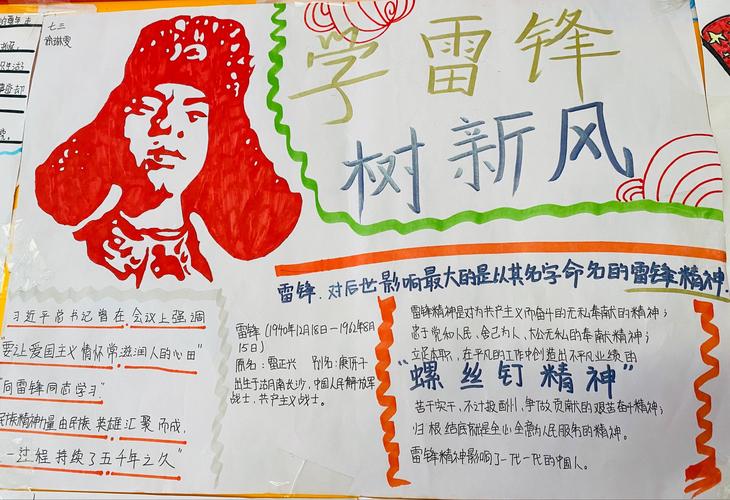 七三
学雷锋
树新风
雷锋，对后世影响最大的是以其名字命名的雷锋精神.
习近平总书记曾在会议上强调
"要让爱国主义情怀常滋润人的心田"
向雷锋同志学习"
民族精神力量由民族英雄汇聚而成，
一过程持续了五千年之久"
雷锋（1940年12月18日—1962年8月
15日）
原名：雷正兴 别名：庚伢子
出生于湖南长沙，中国人民解放军
战士，共产主义战士。
雷锋精神是对为共产主义而奋斗的无私奉献的精神；
忠于党和人民、舍己为人、大公无私的奉献精神；
立足本职、在平凡的工作中创造出不平凡业绩的
"螺丝钉精神"
苦干实干、不计报酬、争做贡献的艰苦奋斗精神；
归根结底就是全心全意为人民服务的精神。
雷锋精神影响了一代一代的中国人。